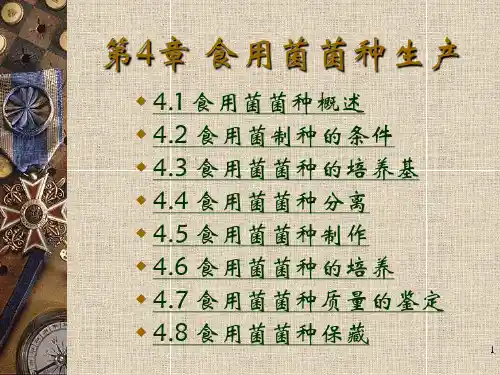 第4章 食用菌菌种生产
4.1 食用菌菌种概述
4.2 食用菌制种的条件
4.3 食用菌菌种的培养基
4.4 食用菌菌种分离
4.5 食用菌菌种制作
4.6 食用菌菌种的培养
4.7 食用菌菌种质量的鉴定
4.8 食用菌菌种保藏
1